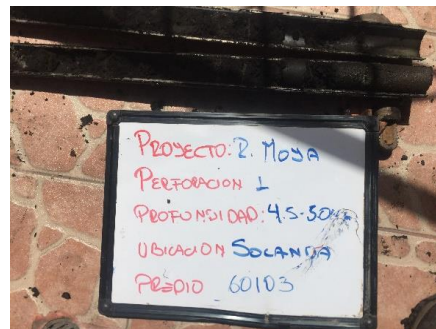 PROYECTO: R. MOYA
PERFORACION 1
PROFUNSIDAD: 4.5-5.0
UBICACION SOLANDA
PREDIO 60103